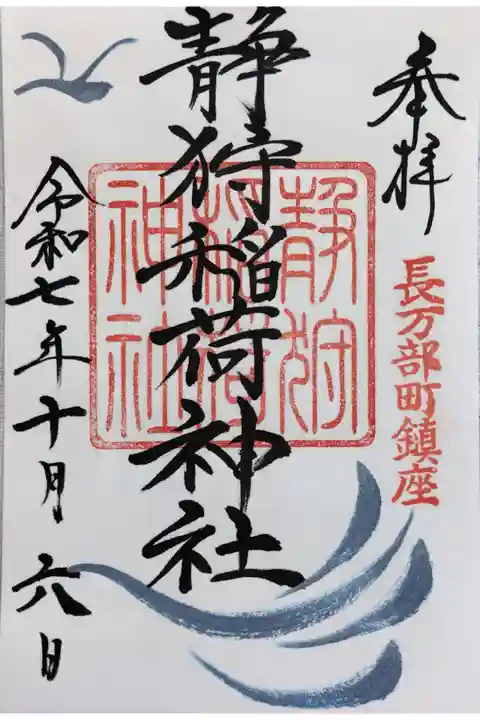 奉拝
長万部町鎮座
静狩稲荷神社
静狩
稲荷
神社
令和七年十月六日